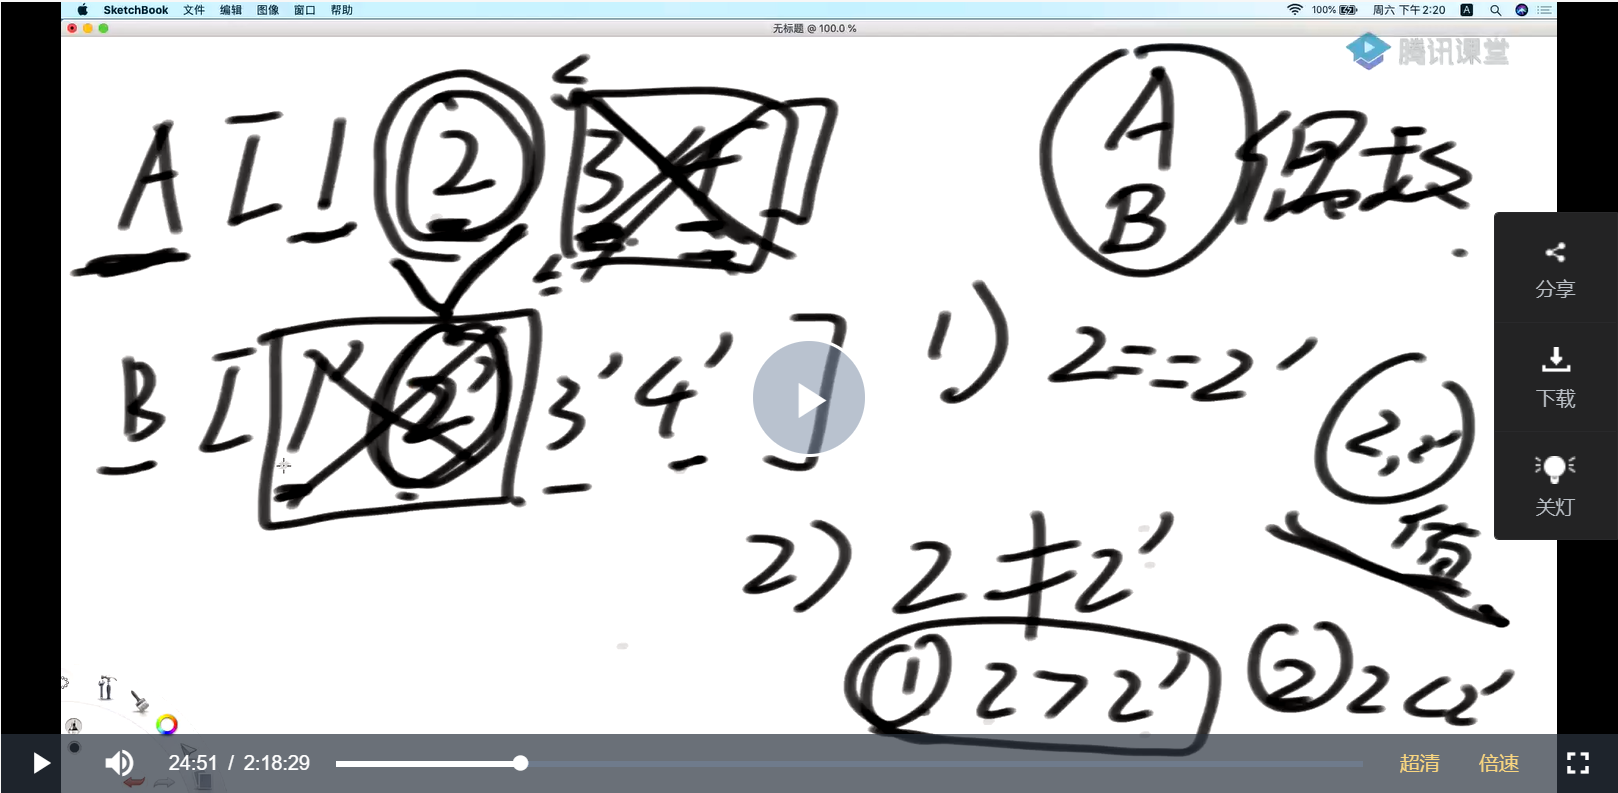 SketchBook 文件 编辑 图像 窗口 帮助 100% 周六 下午2:20 A
无标题 @ 100.0 %
腾讯课堂
A [ 1 2 3 4 ]
A
B
B [ 1' 2' 3' 4' ]
1) 2==2'
2, 2'
值
2) 2≠2'
① 2>2' ② 2<2'
分享
下载
关灯
24:51 / 2:18:29 超清 倍速